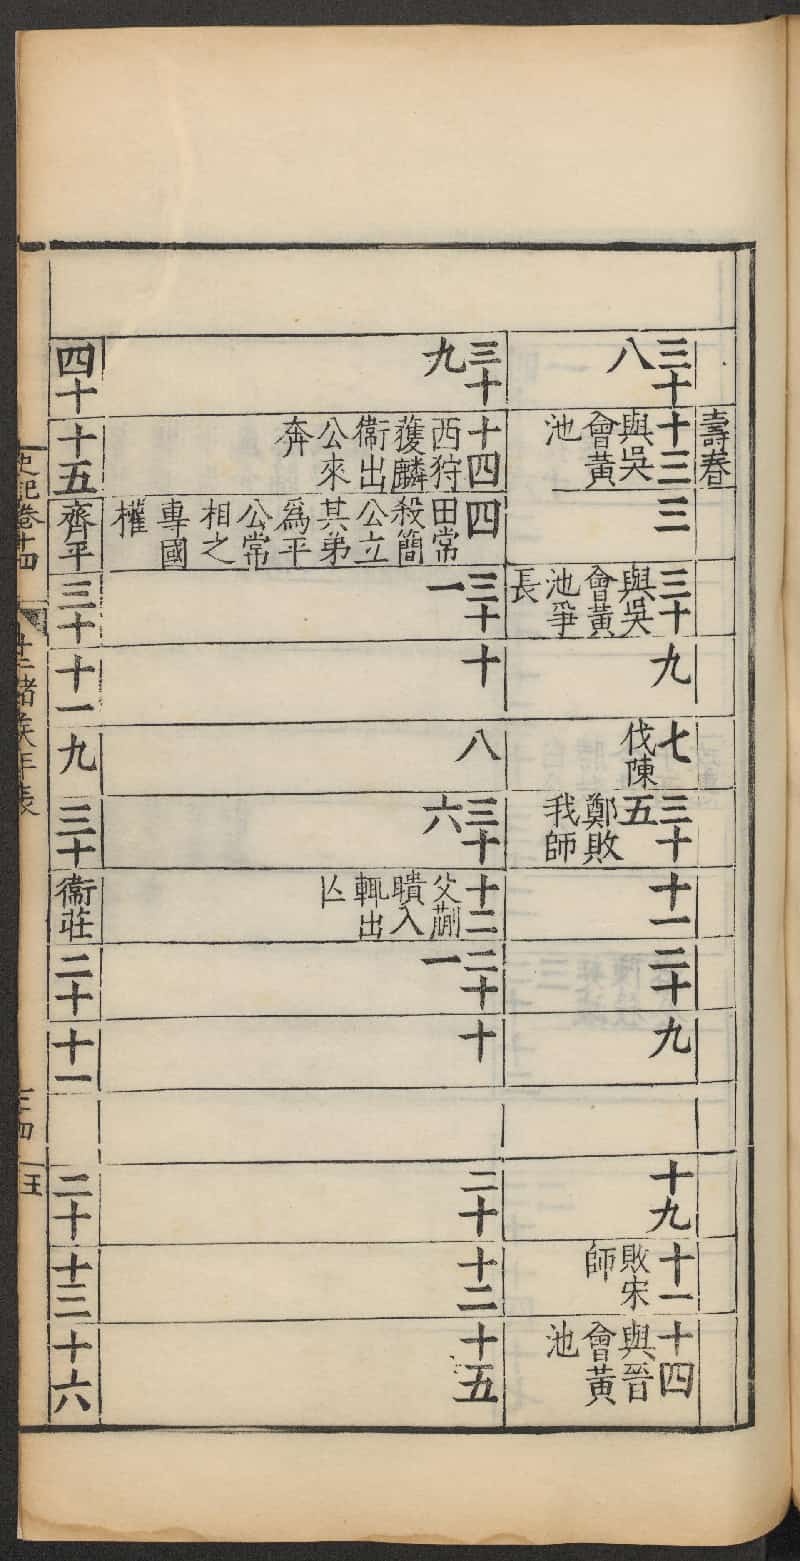 壽春
三十
八
十三
與吳
會黃
池
三
三十
與吳
會黃
池爭
長
九
七
伐陳
三十
五
鄭敗
我師
十一
二十
九
十九
十一
敗宋
師
十四
與晉
會黃
池
三十
九
十四
西狩
獲麟
衞出
公來
奔
四
田常
殺簡
公立
其弟
爲平
公常
相之
專國
權
三十
一
十
八
三十
六
十二
父蒯
聵入
輒出
亾
二十
一
十
二十
十二
十五
四十
十五
齊平
三十
十一
九
三十
衞莊
二十
十一
二十
十三
十六
史記卷十四
十二諸侯年表